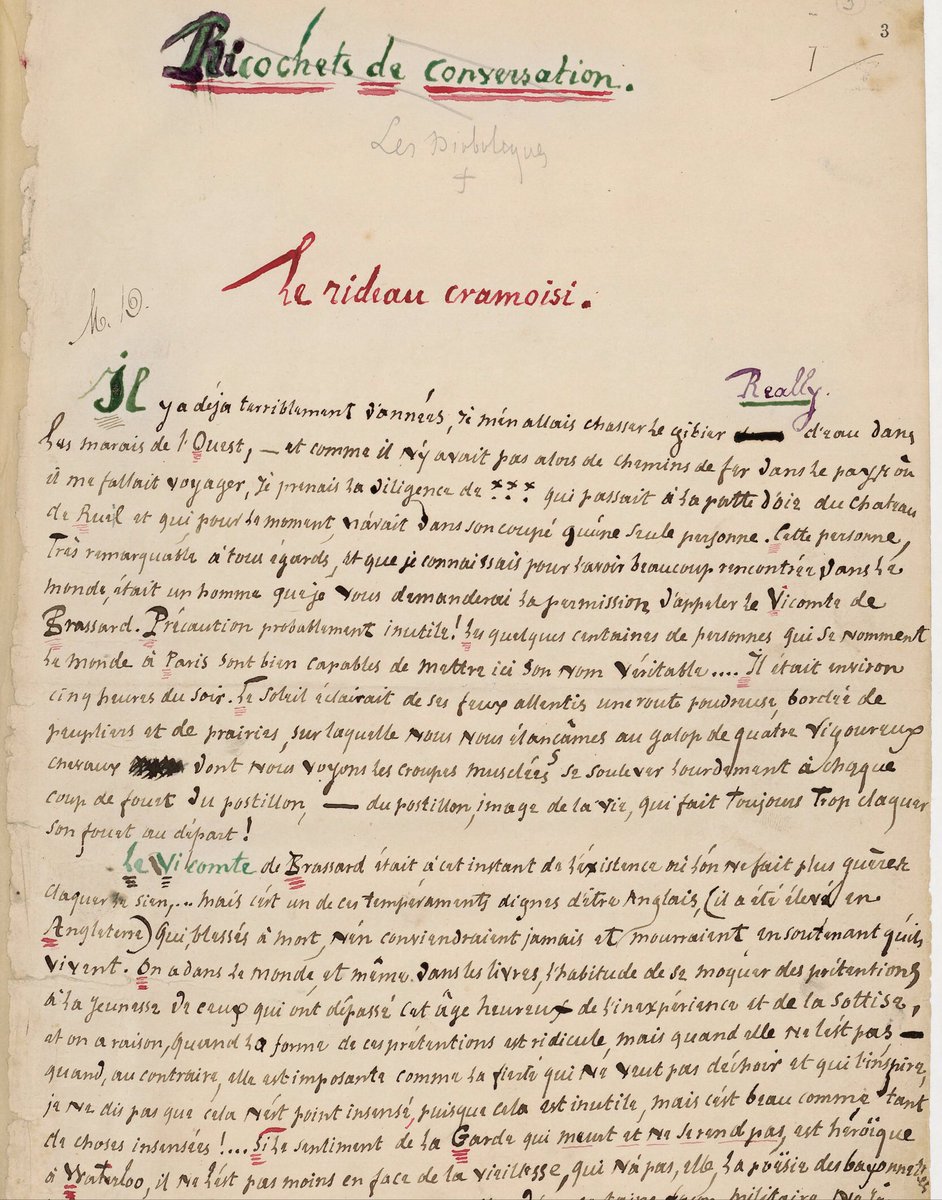 3
Ricochets de conversation.
1
Les Diaboliques
+
Le rideau cramoisi.
Really.
Il y a déja terriblement d'années, je m'en allais chasser le gibier d'eau dans
les marais de l'Ouest, — et comme il n'y avait pas alors de chemins de fer dans le pays où
il me fallait voyager, je prenais la diligence de *** qui passait à la patte d'oie du chateau
de Rueil et qui pour le moment, n'avait dans son coupé qu'une seule personne. Cette personne,
très remarquable à tous égards, et que je connaissais pour l'avoir beaucoup rencontrée dans le
monde, était un homme que je vous demanderai la permission d'appeler le Vicomte de
Brassard. Précaution probablement inutile! Les quelques centaines de personnes qui se nomment
le monde à Paris sont bien capables de mettre ici son nom véritable.... Il était environ
cinq heures du soir. Le soleil éclairait de ses feux allentis une route poudreuse, bordée de
peupliers et de prairies, sur laquelle nous nous élançâmes au galop de quatre vigoureux
chevaux dont nous voyons les croupes musclées se soulever lourdement à chaque
coup de fouet du postillon, — du postillon, image de la vie, qui fait toujours trop claquer
son fouet au départ!
Le Vicomte de Brassard était à cet instant de l'éxistence où l'on ne fait plus guères
claquer le sien,... mais c'est un de ces tempéraments dignes d'être Anglais, (il a été élevé en
Angleterre) qui, blessés à mort, n'en conviendraient jamais et mourraient en soutenant qu'ils
vivent. On a dans le monde, et même dans les livres, l'habitude de se moquer des prétentions
à la jeunesse de ceux qui ont dépassé cet âge heureux de l'inexpérience et de la sottise,
et on a raison, quand la forme de ces prétentions est ridicule, mais quand elle ne l'est pas —
quand, au contraire, elle est imposante comme la fierté qui ne veut pas déchoir et qui l'inspire,
je ne dis pas que cela n'est point insensé, puisque cela est inutile, mais c'est beau comme tant
de choses insensées!.... Si le sentiment de la Garde qui meurt et ne se rend pas, est héroïque
à Waterloo, il ne l'est pas moins en face de la vieillesse, qui n'a pas, elle, la poësie des bayonnettes
militaire